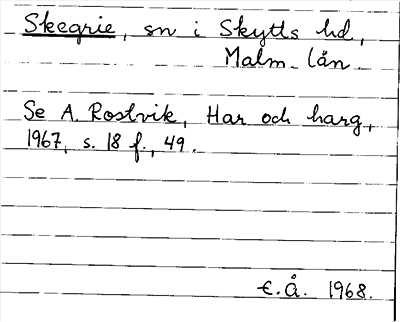 Skegrie, sn i Skytts hd,
Malm. län.
Se A. Rostvik, Har och harg,
1967, s. 18 f., 49.
E.Å. 1968.